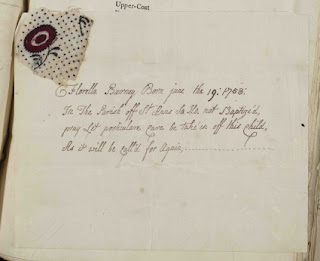 Upper-Coat
Florella Burney Born june the 19: 1758:
In The Parish off St Anns So Ho. not Baptize'd,
pray Let particulare Care be take'en off this child,
As it will be call'd for Again,